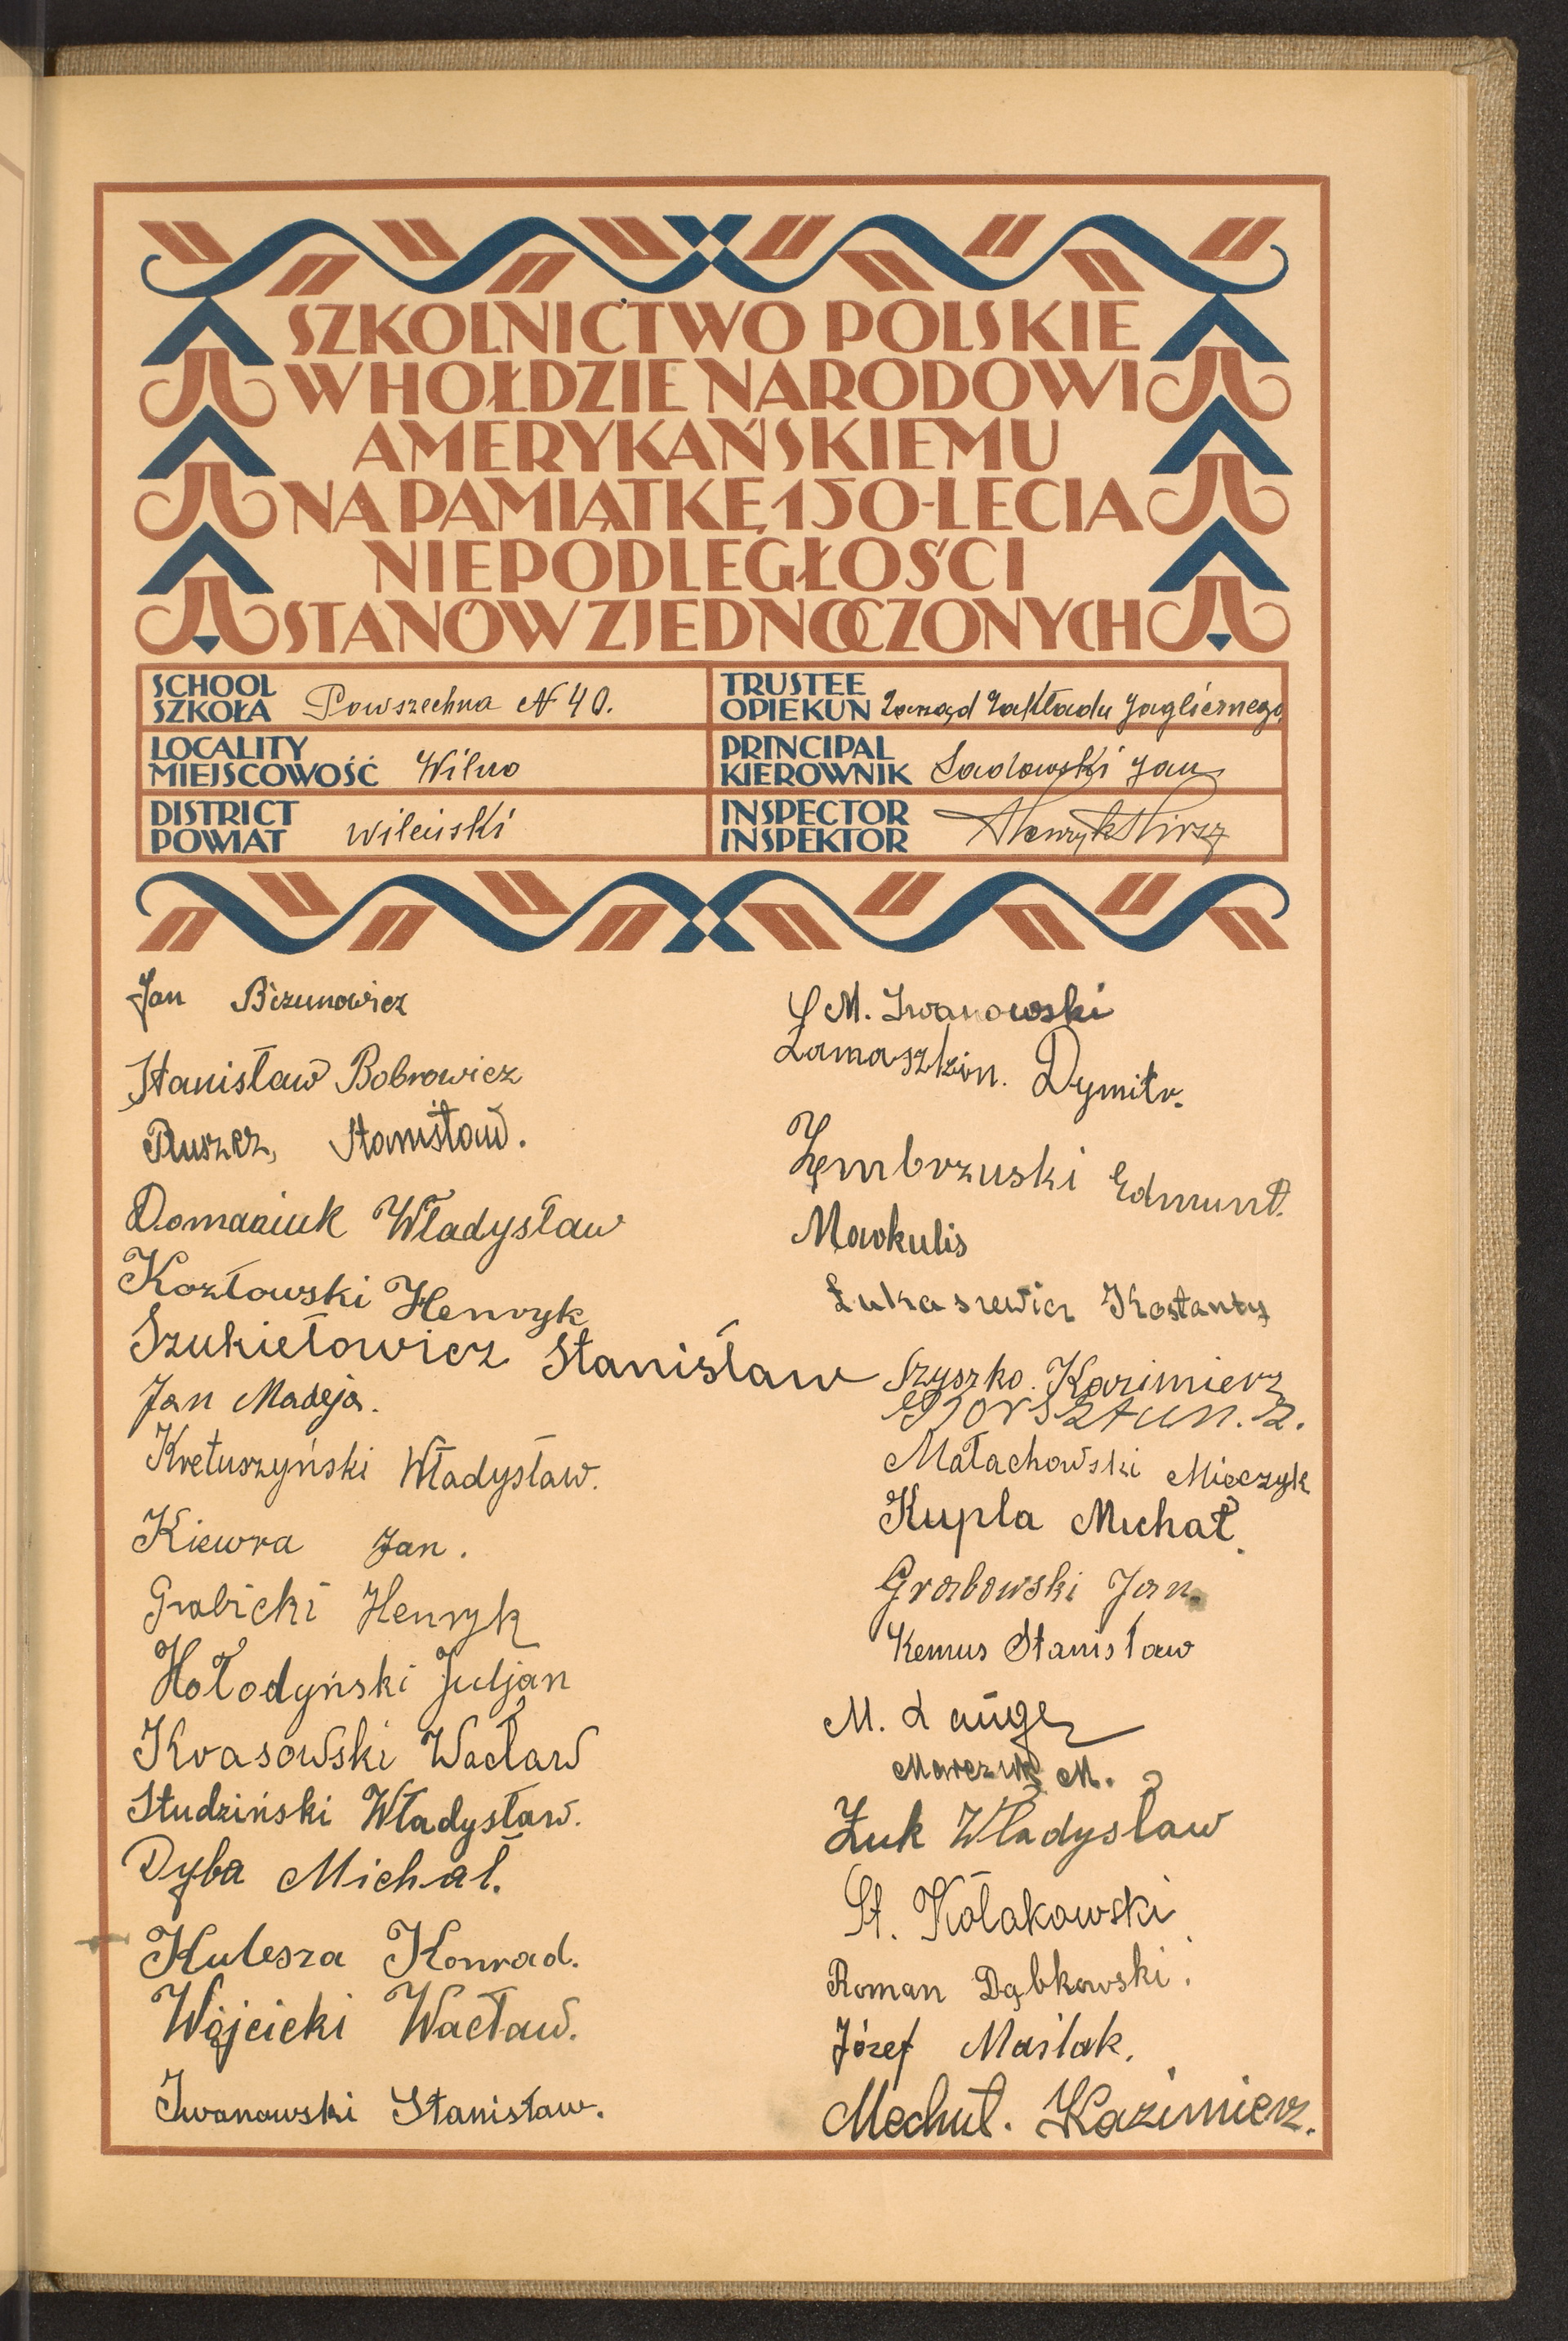 SZKOLNICTWO POLSKIE
W HOŁDZIE NARODOWI
AMERYKAŃSKIEMU
NA PAMIĄTKĘ 150-LECIA
NIEPODLEGŁOŚCI
STANÓW ZJEDNOCZONYCH
SCHOOL
SZKOŁA Powszechna N 40.
TRUSTEE
OPIEKUN Zarząd Zakładu
LOCALITY
MIEJSCOWOŚĆ Wilno
PRINCIPAL
KIEROWNIK Sadowski Jan
DISTRICT
POWIAT wileński
INSPECTOR
INSPEKTOR Henryk
Jan Bizunowicz
Stanisław Bobrowicz
Ruszcz, Stanisław.
Domaniuk Władysław
Kozłowski Henryk
Szukiełowicz Stanisław
Jan Madeja.
Kretuszyński Władysław.
Kiewra Jan.
Grabicki Henryk
Hołodyński Juljan
Krasowski Wacław
Studziński Władysław.
Dyba Michał.
Kulesza Konrad.
Wójcicki Wacław.
Iwanowski Stanisław.
M. Iwanowski
Łamaszkin. Dymitr.
Zembrzuski Edmund.
Markulis
Łukaszewicz Kostanty
Szyszko. Kazimierz
Borsztun. Z.
Małachowski Mieczyk
Kupla Michał.
Grabowski Jan.
Kemus Stanisław
M. Lange
Marczuk M.
Żuk Władysław
St. Kołakowski.
Roman Dąbkowski.
Józef Maślak.
Mechuł. Kazimierz.